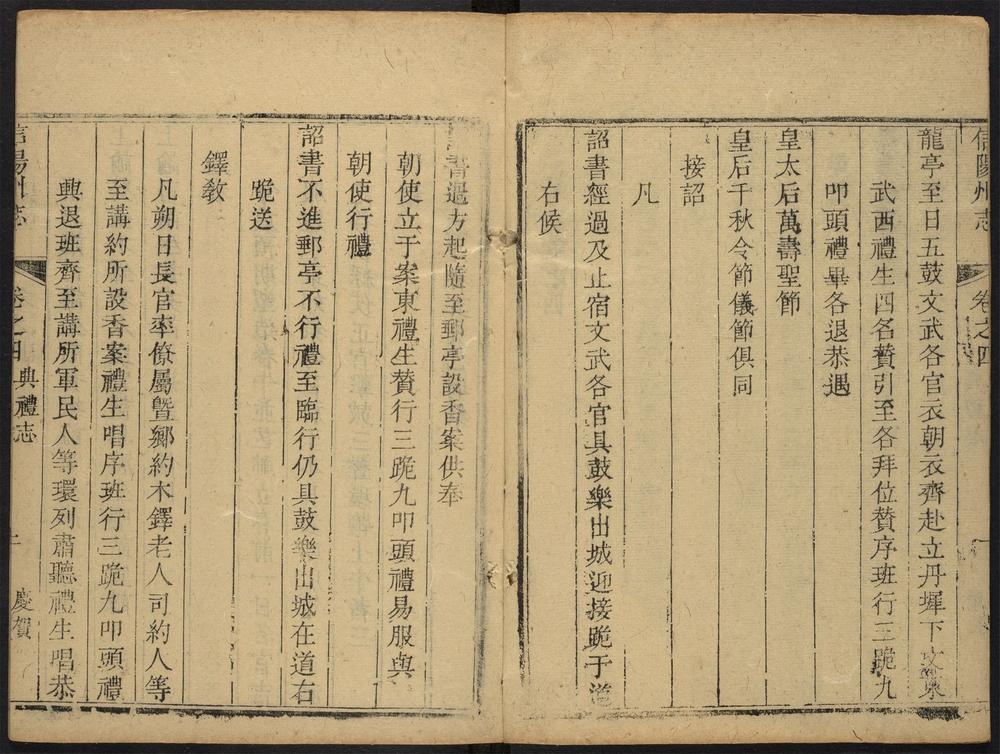 信陽州志 卷之四
龍亭至日五鼓文武各官衣朝衣齊赴立丹墀下文東
武西禮生四名贊引至各拜位贊序班行三跪九
叩頭禮畢各退恭遇
皇太后萬壽聖節
皇后千秋令節儀節俱同
接詔
凡
詔書經過及止宿文武各官具鼓樂出城迎接跪于道
右候
詔書過方起隨至郵亭設香案供奉
朝使立于案東禮生贊行三跪九叩頭禮易服與
朝使行禮
詔書不進郵亭不行禮至臨行仍具鼓樂出城在道右
跪送
鐸教
凡朔日長官率僚屬暨鄉約木鐸老人司約人等
至講約所設香案禮生唱序班行三跪九叩頭禮
興退班齊至講所軍民人等環列肅聽禮生唱恭
信陽州志 卷之四 典禮志 慶賀